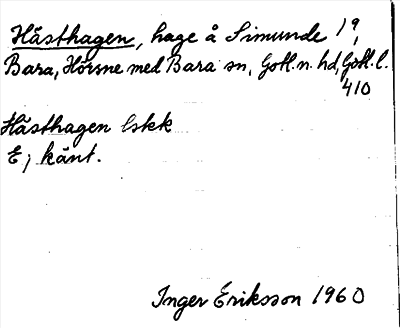 Hästhagen, hage å Simunde 1 9,
Bara, Hörsne med Bara sn, Gotl. n. hd, Gotl. l.
410
Hästhagen lskk
E j känt.
Inger Eriksson 1960